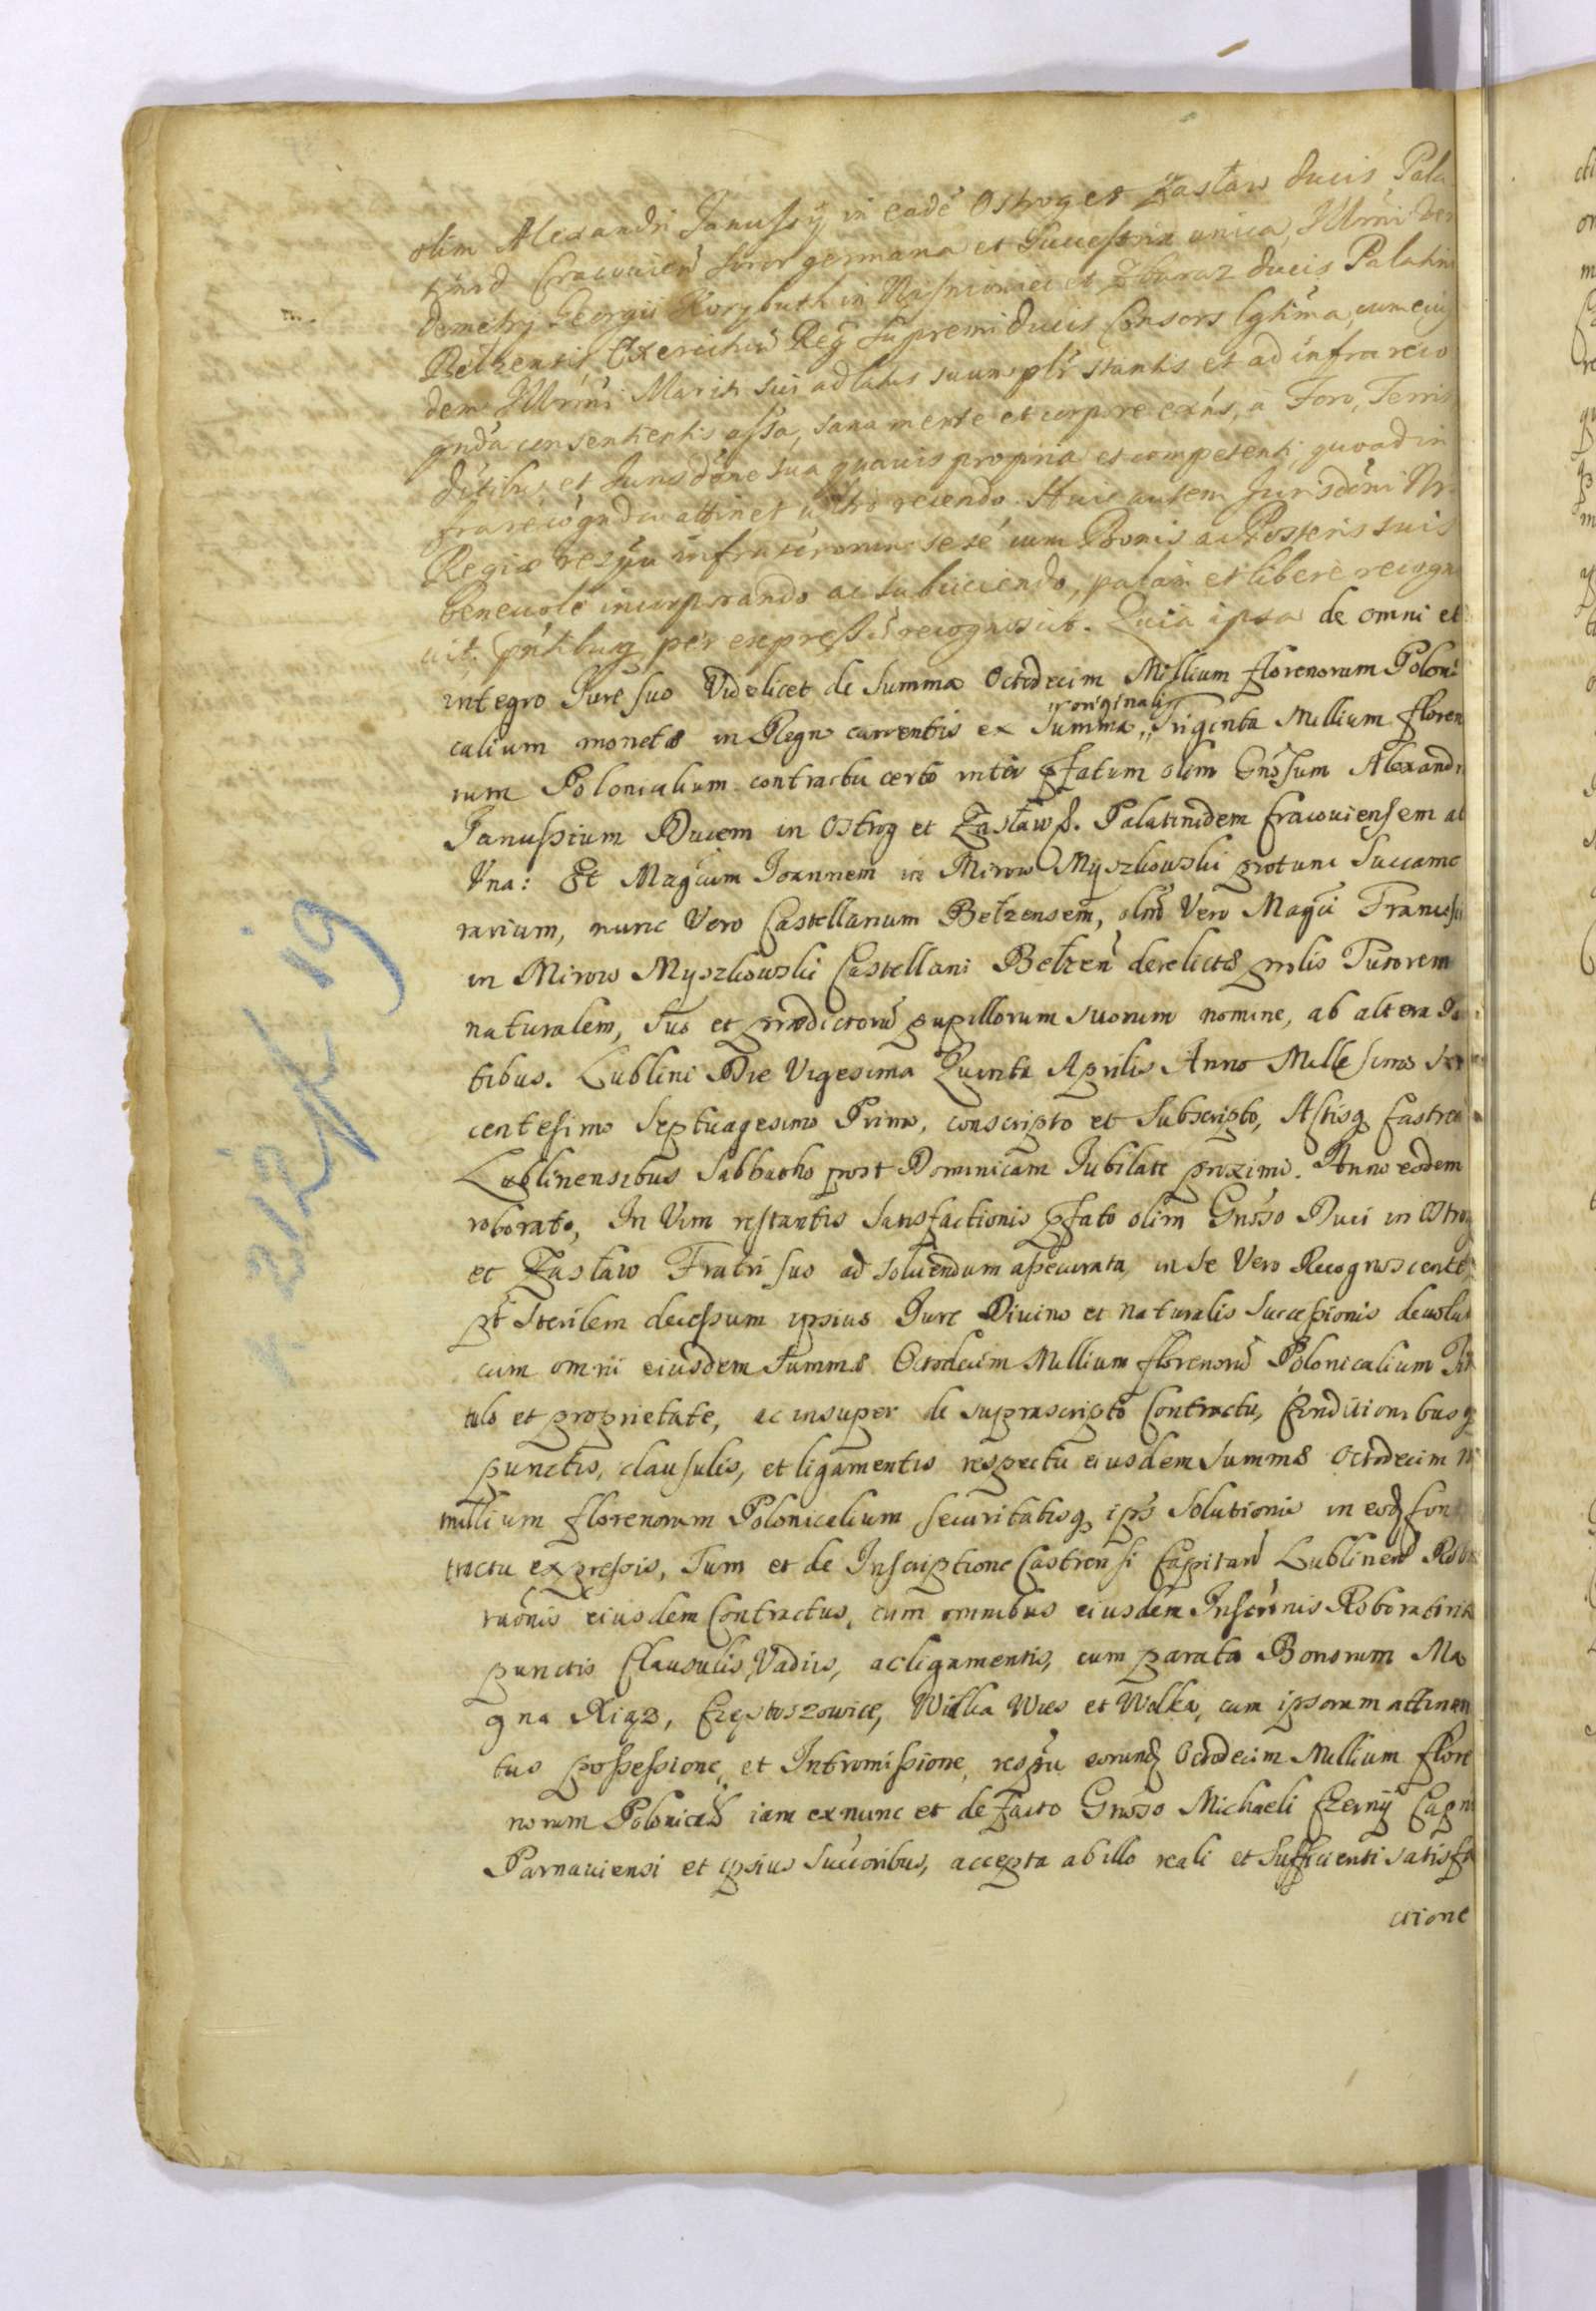 olim Alexandri Janussÿ in eadē Ostrog et Zasław Ducis, Pala
tinid Cracovien̄ Soror germana et Successtrix unica, Illrm̄i
Demetrÿ Georgii Korybuth in et Zbaraz Ducis Palatini
Bełzensis Exercituū Reg̃ Supremi Ducis Consors lgtm̄a, cum eiuˢ
dem Illrm̄i Mariti sui ad latus suum plr̄ stantis et ad infra reco
gnda consentientis assa, sana mente et corpore exn̄s, à Foro, Terris
et Jurisdōne sua quauis propria et competenti quoad in
fra recōgnda attinet recendo. Huic autem Jurisdōni
Regiæ respu infrascrorum sese cum Bonis ac Posteris suis
beneuole incorporando ac subiiciendo, palam et libere recogno
uit. per expressū recognoscit. Quia ipsa de omni et
integro Jure suo Videlicet de Summa Octodecim Millium florenorum Poloni
calium monetæ in Regno currentis ex Summa originali Triginta Millium floren
rum Polonicalium contractu certo inter pfatum olim Gnōsum Alexandr
Janussium Ducem in Ostrog et Zasław Palatinidem Cracouiensem ab
Vna: Et Magcum Joannem in Mirow Myszkowski protunc Succame
rarium, nunc Vero Castellanum Bełzensem, olim Vero Magci Francisci
in Mirow Myszkowski Castellani Bełzen̄ derelictæ prolis Tutorem
naturalem, suo et prædictorū pupillorum suorum nomine, ab altera Pa
tibus. Lublini Die Vigesima Quinta Aprilis Anno Millesimo Sex
centesimo Septuagesimo Primo, conscripto et Subscripto, Astisq Castren
Lublinensibus Sabbatho post Dominicam Jubilate proximo. Anno eodem
roborato, In Vim restantis Satisfactionis pfato olim Gnōso Duci in Ostrog
et Zasław Fratri suo ad soluendum assecurata, in se Vero Recognoscente
pt Sterilem decessum ipsius Jure Diuino et naturalis Successionis deuolut
cum omni eiusdem Summæ Octodecim Millium florenorū Polonicalium Ti
tulo et proprietate, ac insuper de suprascripto Contractu, Conditionibusq
punctis, clausulis, et ligamentis respectu eiusdem Summæ Octodecim M
millium florenorum Polonicalium securitatisq ips̄ Solutionis in eod Con
tractu expressis, Tum et de Inscriptione Castrensi Capitan̄ Lublinen̄ Robo
raōnis eiusdem Contractus, cum omnibus eiusdem Inscrōnis Roboratoriæ
punctis Clausulis, Vadiis, ac ligamentis, cum parata Bonorum Ma
gna Xiąz, Czepłoszowice, Wielka Wies et Wolka, cum ipsorum attinen
tiis possessione, et Intromissione, respu eorund Octodecim Millium flore
norum Polonical iam exnunc et de facto Gnōso Michaeli Czernÿ Capn
Parnauiensi et ipsius Succoribus, accepta ab illo reali et Sufficienti satisfa
ctione